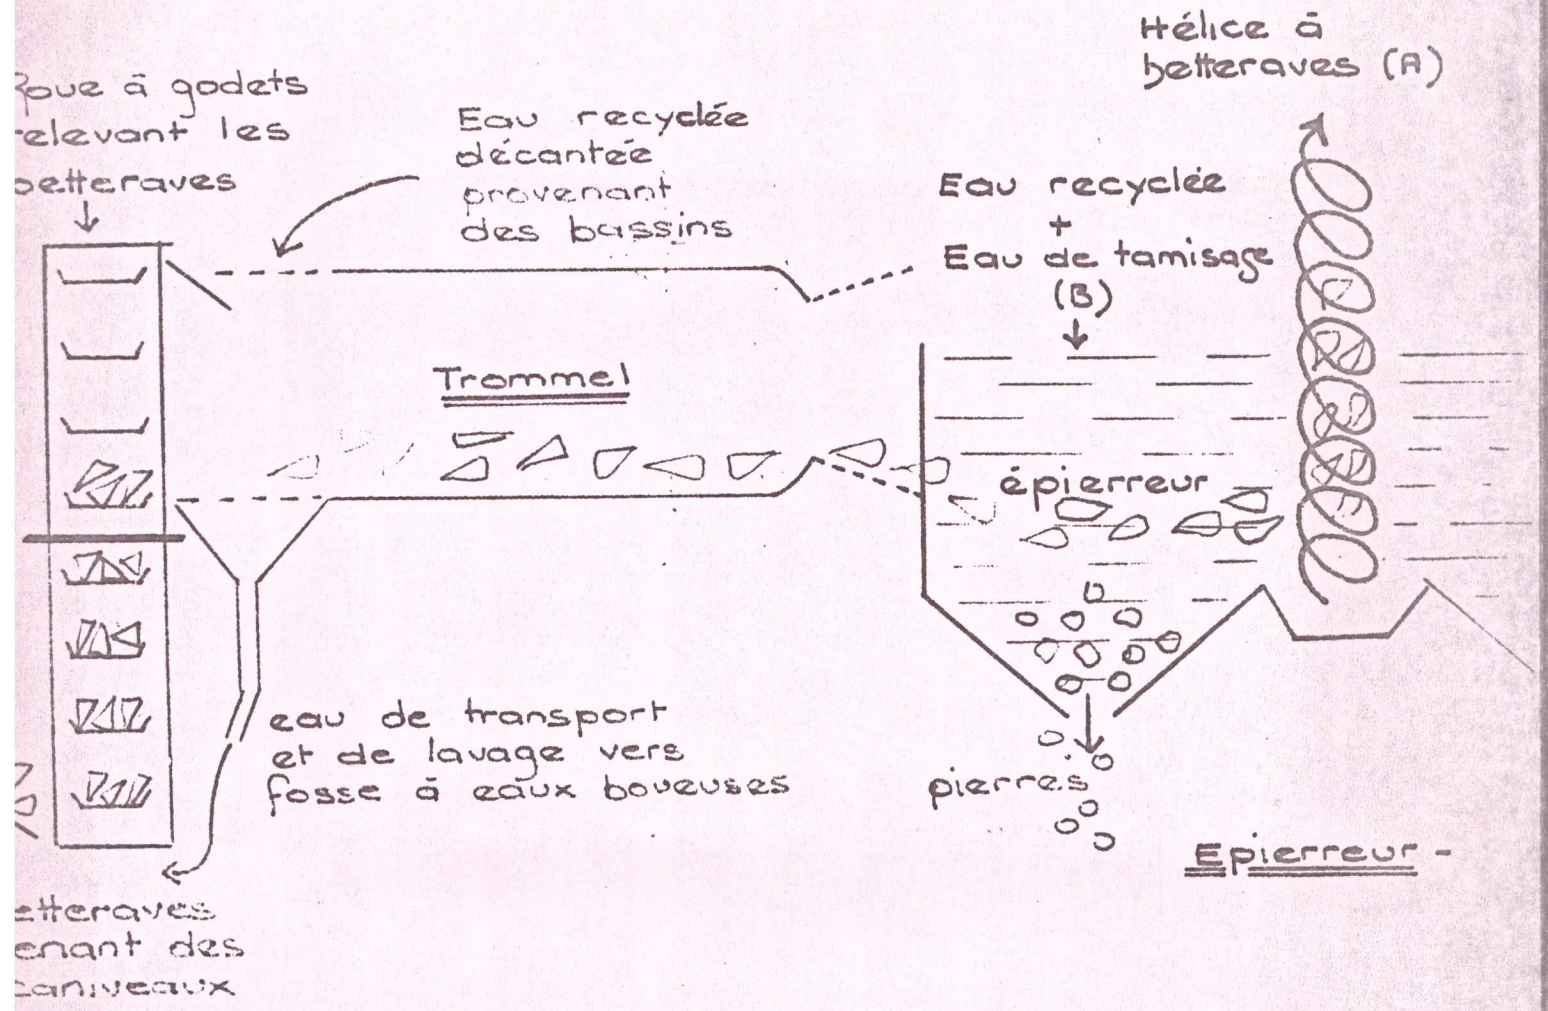 Roue à godets
relevant les
betteraves
Eau recyclée
décantée
provenant
des bassins
Hélice à
betteraves (A)
Eau recyclée
+
Eau de tamisage
(B)
Trommel
épierreur
eau de transport
et de lavage vers
fosse à eaux boueuses
pierres
Epierreur -
etteraves
enant des
caniveaux